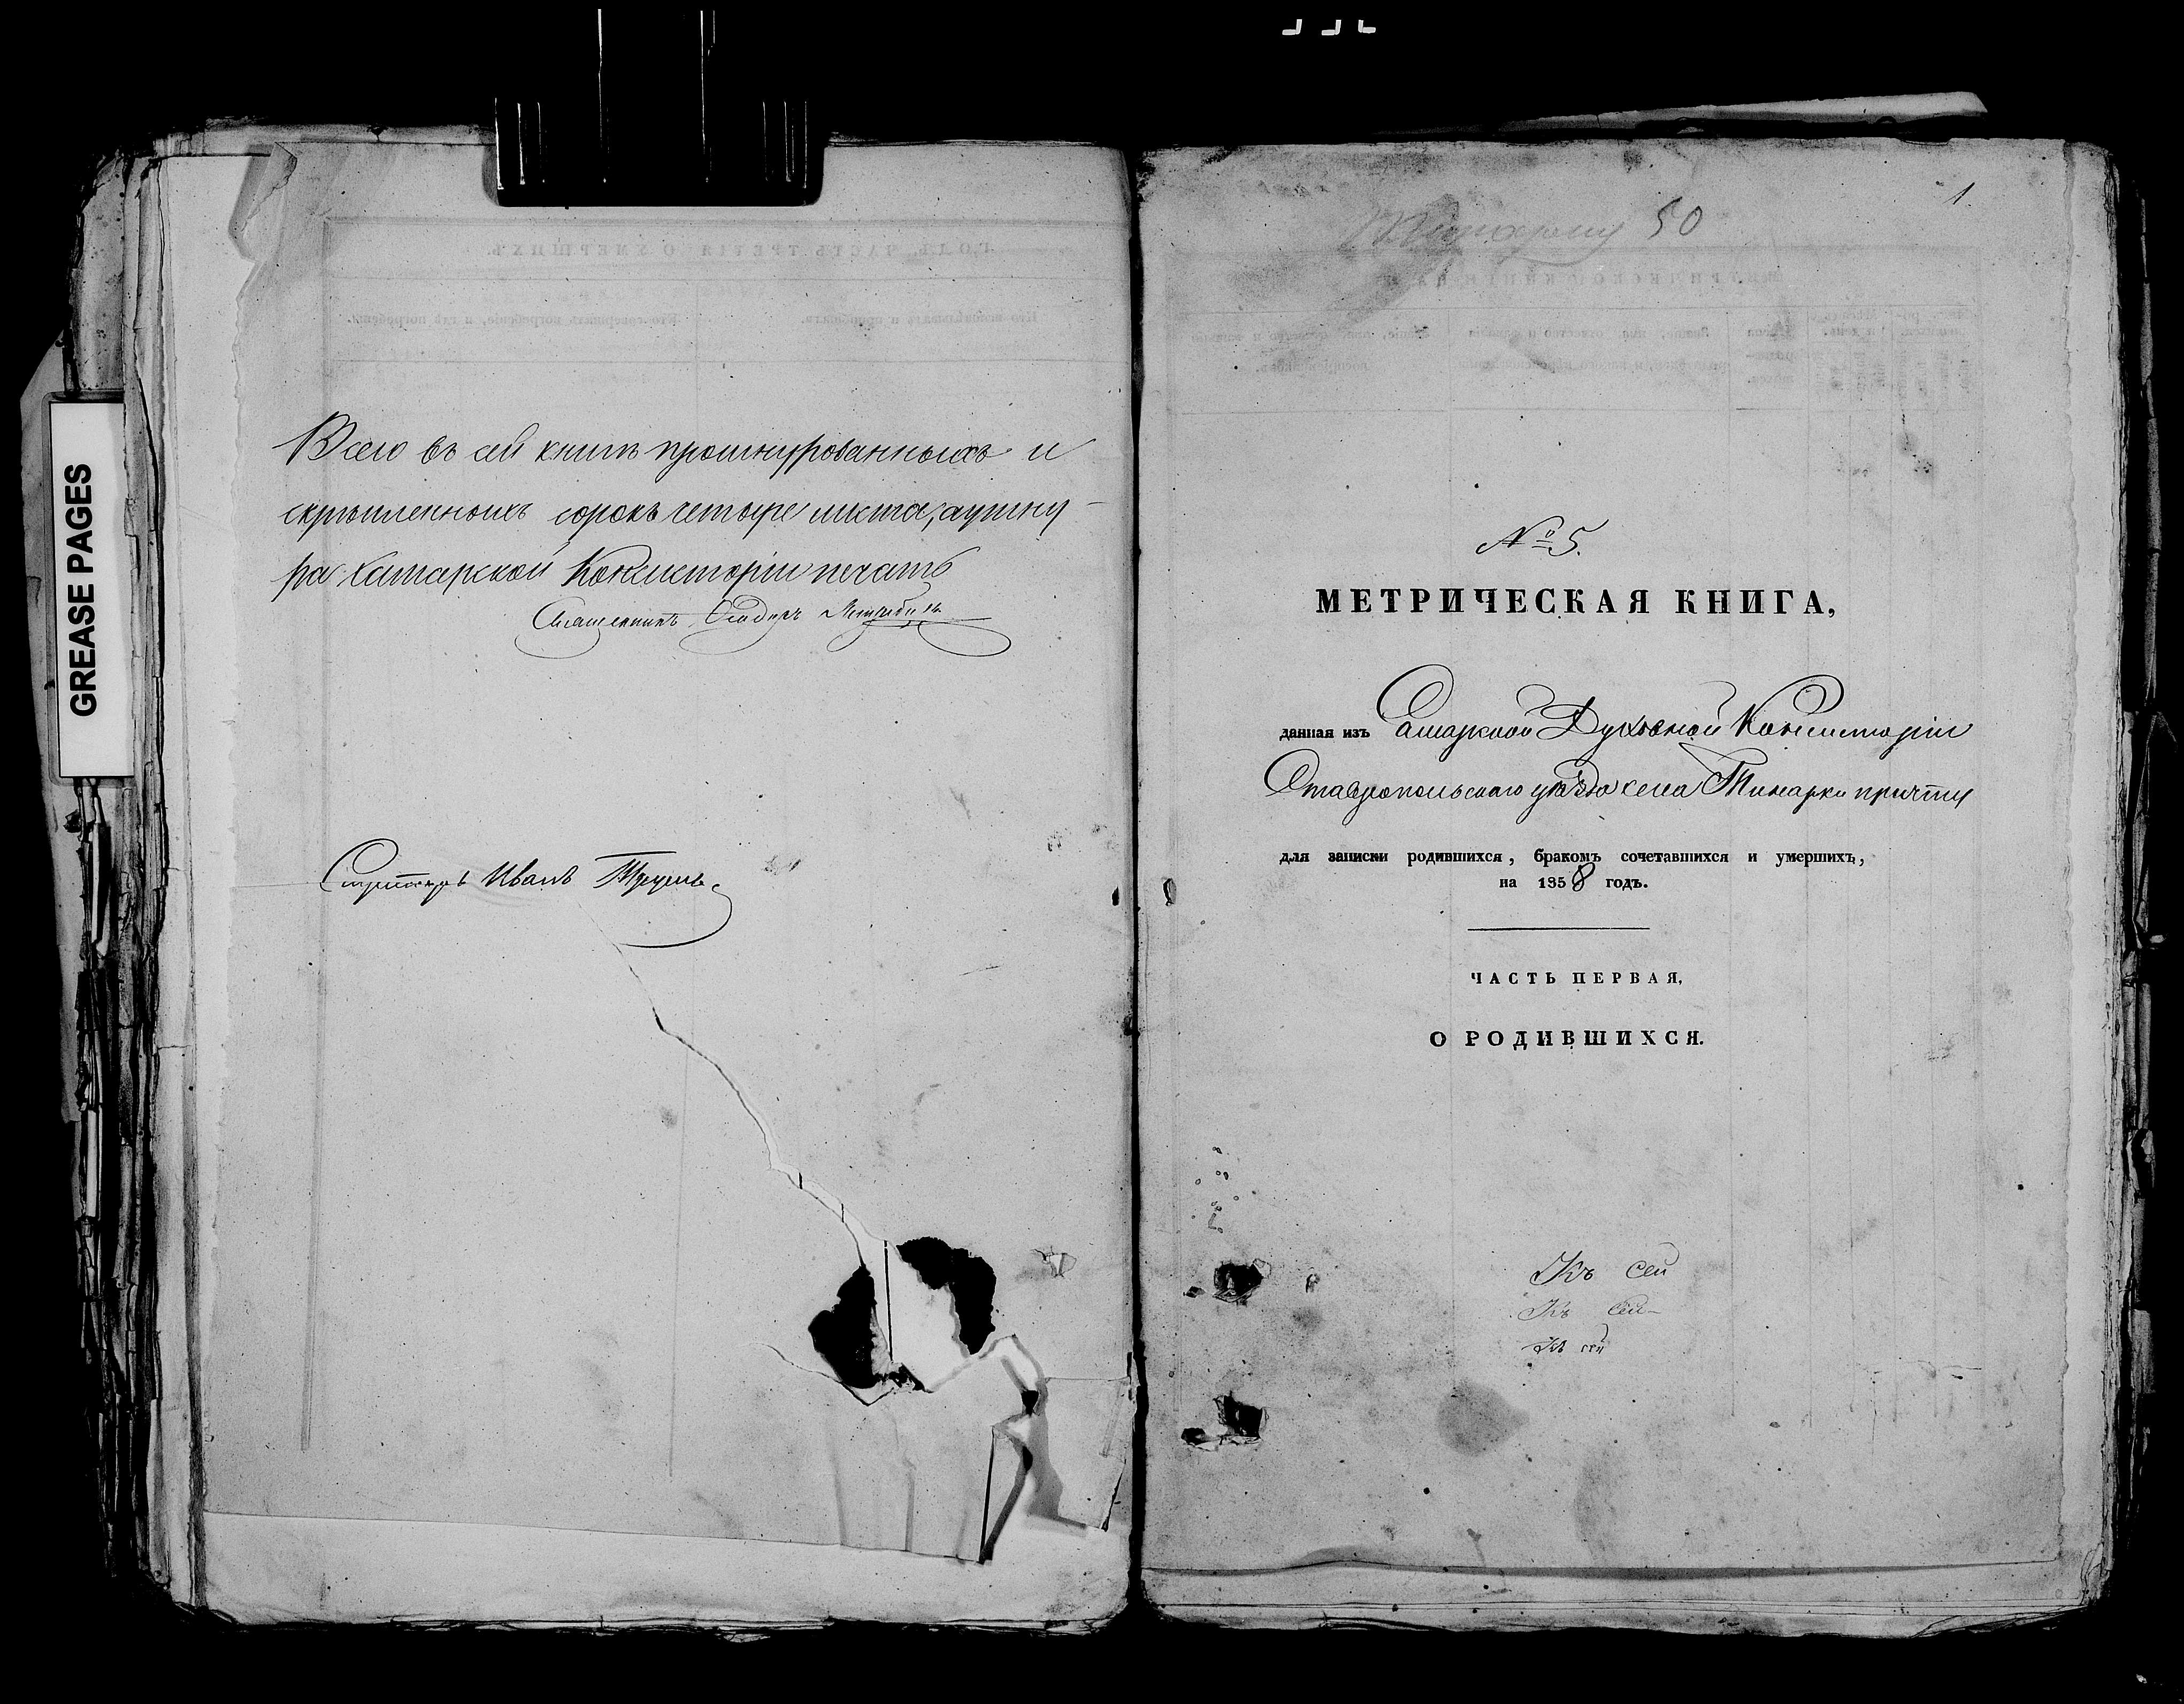 GREASE PAGES
Всего въ сей книгѣ прошнурованныхъ и
скрѣпленныхъ сорокъ четыре листа, а у шну-
ра Самарской Консисторіи печать
Священникъ Ѳеодоръ
Секретарь Иванъ
1.
50
№ 5.
МЕТРИЧЕСКАЯ КНИГА,
данная изъ Самарской Духовной Консисторіи
Ставропольскаго уѣзда села причту
для записки родившихся, бракомъ сочетавшихся и умершихъ,
на 1858 годъ.
ЧАСТЬ ПЕРВАЯ,
О РОДИВШИХСЯ.
Къ сей
Къ сей
Къ сей